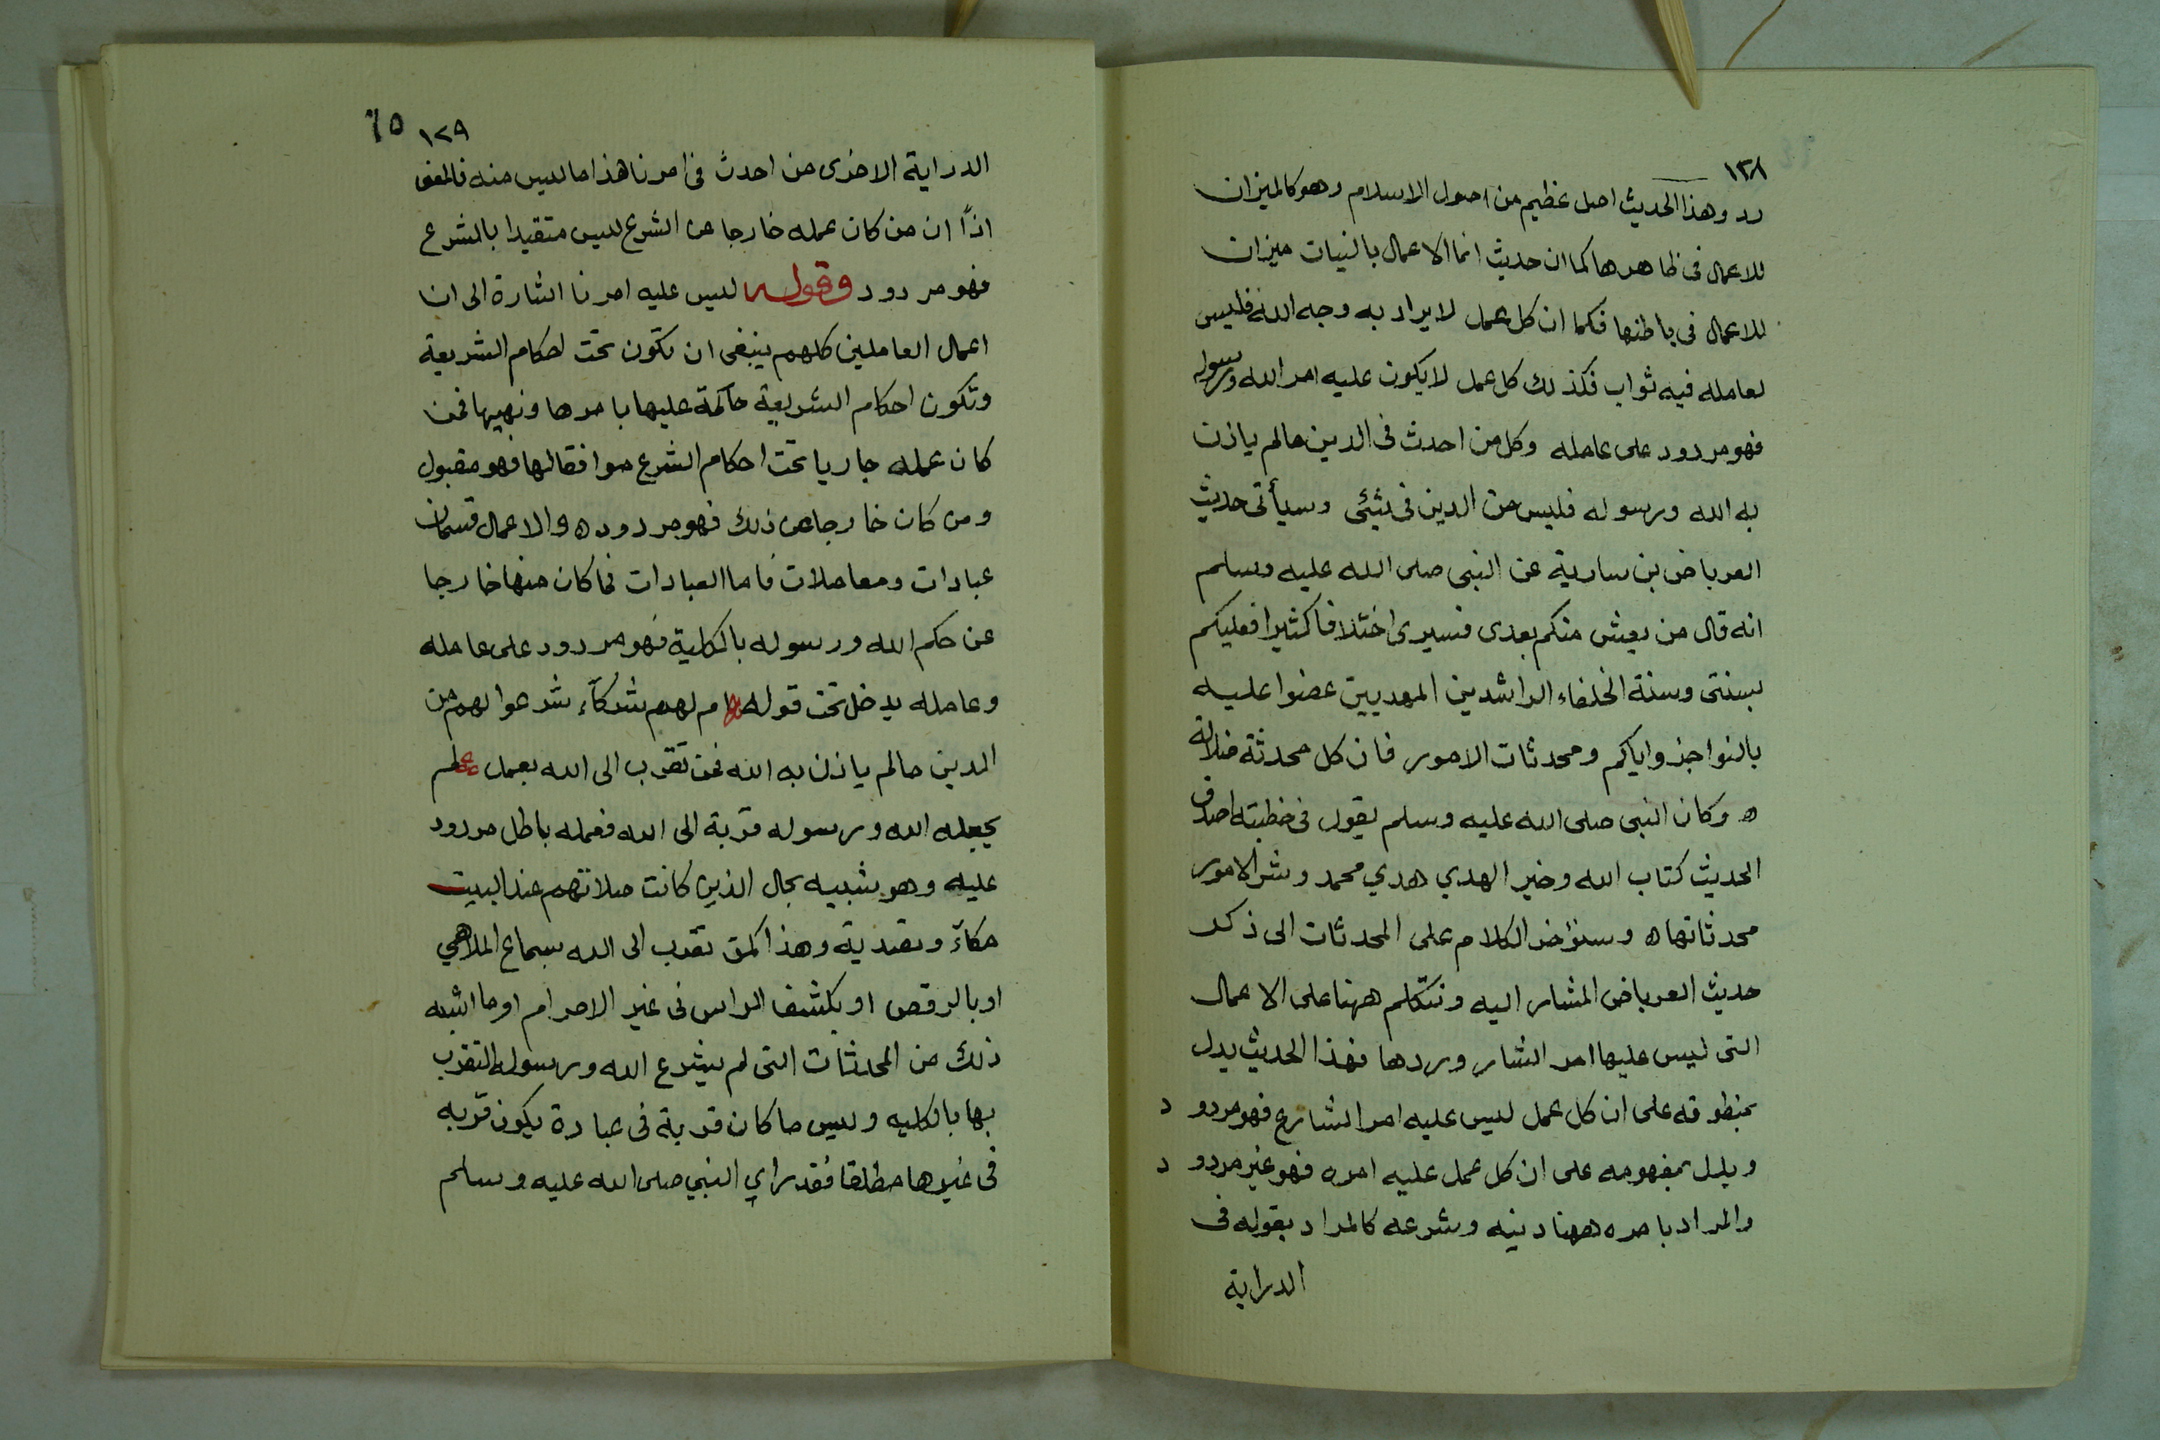 ١٢٨
رد وهذا الحديث اصل عظيم من اصول الاسلام وهو كالميزان
للاعمال فى ظاهرها كما ان حديث انما الاعمال بالنيات ميزان
للاعمال فى باطنها فكما ان كل عمل لا يراد به وجه الله فليس
لعامله فيه ثواب فكذلك كل عمل لا يكون عليه امر الله ورسوله
فهو مردود على عامله وكل من احدث فى الدين مالم ياذن
به الله ورسوله فليس من الدين فى شيئ وسيأتى حديث
العرباض بن سارية عن النبى صلى الله عليه وسلم
انه قال من يعش منكم بعدى فسيرى اختلافا كثيرا فعليكم
بسنتى وسنة الخلفاء الراشدين المهديين عضوا عليه
بالنواجذ واياكم ومحدثات الامور فان كل محدثة ضلالة
ه وكان النبى صلى الله عليه وسلم يقول فى خطبته اصدق
الحديث كتاب الله وخير الهدي هدي محمد وشر الامور
محدثاتها ه وسنؤخر الكلام على المحدثات الى ذكر
حديث العرباض المشار اليه ونتكلم ههنا على الاعمال
التى ليس عليها امر الشار وردها فهذا الحديث يدل
بمنطوقه على ان كل عمل ليس عليه امر الشارع فهو مردو د
ويدل بمفهومه على ان كل عمل عليه امره فهو غير مردو د
والمراد بامره ههنا دينه وشرعه كالمراد بقوله فى
الدراية
١٢٩ ٦٥
الدراية الاخرى من احدث فى امرنا هذا ما ليس منه فالمعنى
اذًا ان من كان عمله خارجا عن الشرع ليس متقيدا بالشرع
فهو مردود وقوله ليس عليه امرنا اشارة الى ان
اعمال العاملين كلهم ينبغى ان تكون تحت احكام الشريعة
وتكون احكام الشريعة حاكمة عليها بامرها ونهيها فمن
كان عمله جاريا تحت احكام الشرع موافقا لها فهو مقبول
ومن كان خارجا عن ذلك فهو مردود ه والاعمال قسمان
عبادات ومعاملات فاما العبادات فما كان منها خارجا
عن حكم الله ورسوله بالكلية فهو مردود على عامله
وعامله يدخل تحت قوله ام لهم شركآء شرعوا لهم من
الدين مالم ياذن به الله فمن تقرب الى الله بعمل لم
يجعله الله ورسوله قربة الى الله فعمله باطل مردود
عليه وهو شبيه بحال الذين كانت صلاتهم عند البيت
مكآء وتصدية وهذا كمن تقرب الى الله بسماع الملاهي
او بالرقص او بكشف الراس فى غير الاحرام او ما اشبه
ذلك من المحدثات التى لم يشرع الله ورسوله التقرب
بها بالكليه وليس ما كان قربة فى عبادة يكون قربه
فى غيرها مطلقا فقد راي النبي صلى الله عليه وسلم